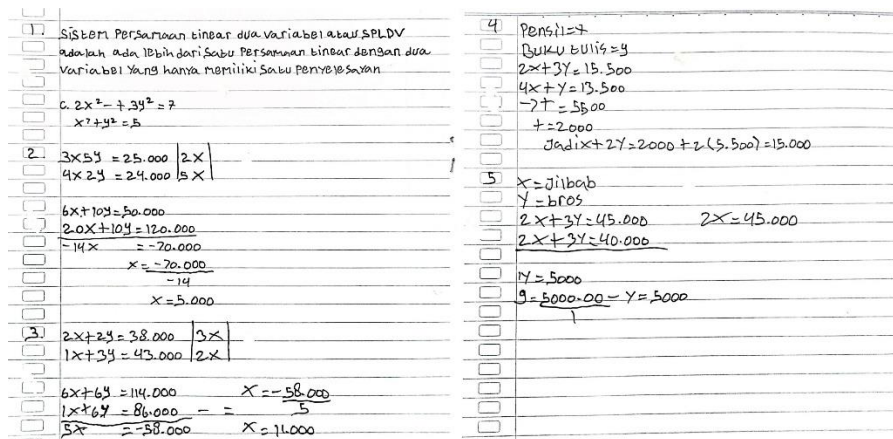 1. Sistem Persamaan Linear dua variabel atau SPLDV
adalah ada lebih dari satu persamaan linear dengan dua
variabel yang hanya memiliki satu penyelesaian
C. 2x² - + 3y² = 7
x² + y² = 5
2. 3x5y = 25.000 | 2x |
4x2y = 24.000 | 5x |
6x+10y=50.000
20x+10y=120.000
-14x = -70.000
x = -70.000
-14
x = 5.000
3. 2x+2y = 38.000 | 3x |
1x+3y = 43.000 | 2x |
6x+6y = 114.000 x = -58.000
1x+6y = 86.000 - = 5
5x = -58.000 x = 11.000
4 Pensil=x
Buku tulis=y
2x+3y=15.500
4x+y=13.500
->+ = 5500
+=2000
Jadi x+2y=2000+2(5.500)=15.000
5 x=Jilbab
y=bros
2x+3y=45.000 2x=45.000
2x+3y=40.000
1y=5000
9=5000.00-y=5000
1